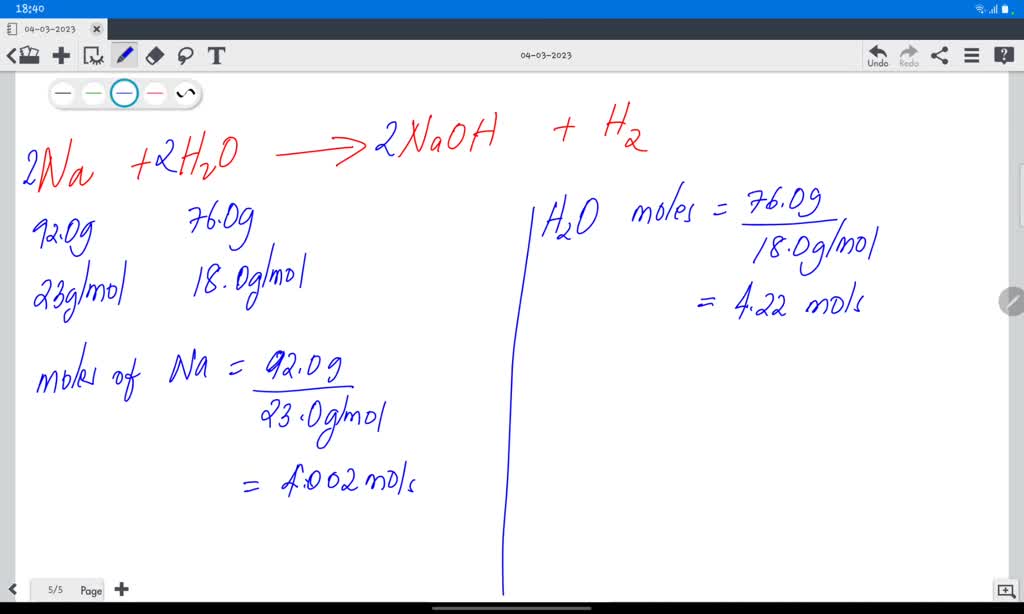 18:40
04-03-2023
T
04-03-2023
Undo
Redo
2Na + 2H₂O ⟶ 2NaOH + H₂
92.0g 76.0g
23g/mol 18.0g/mol
moles of Na = 92.0g
23.0g/mol
= 4.002 mols
H₂O moles = 76.0g
18.0g/mol
= 4.22 mols
5/5 Page